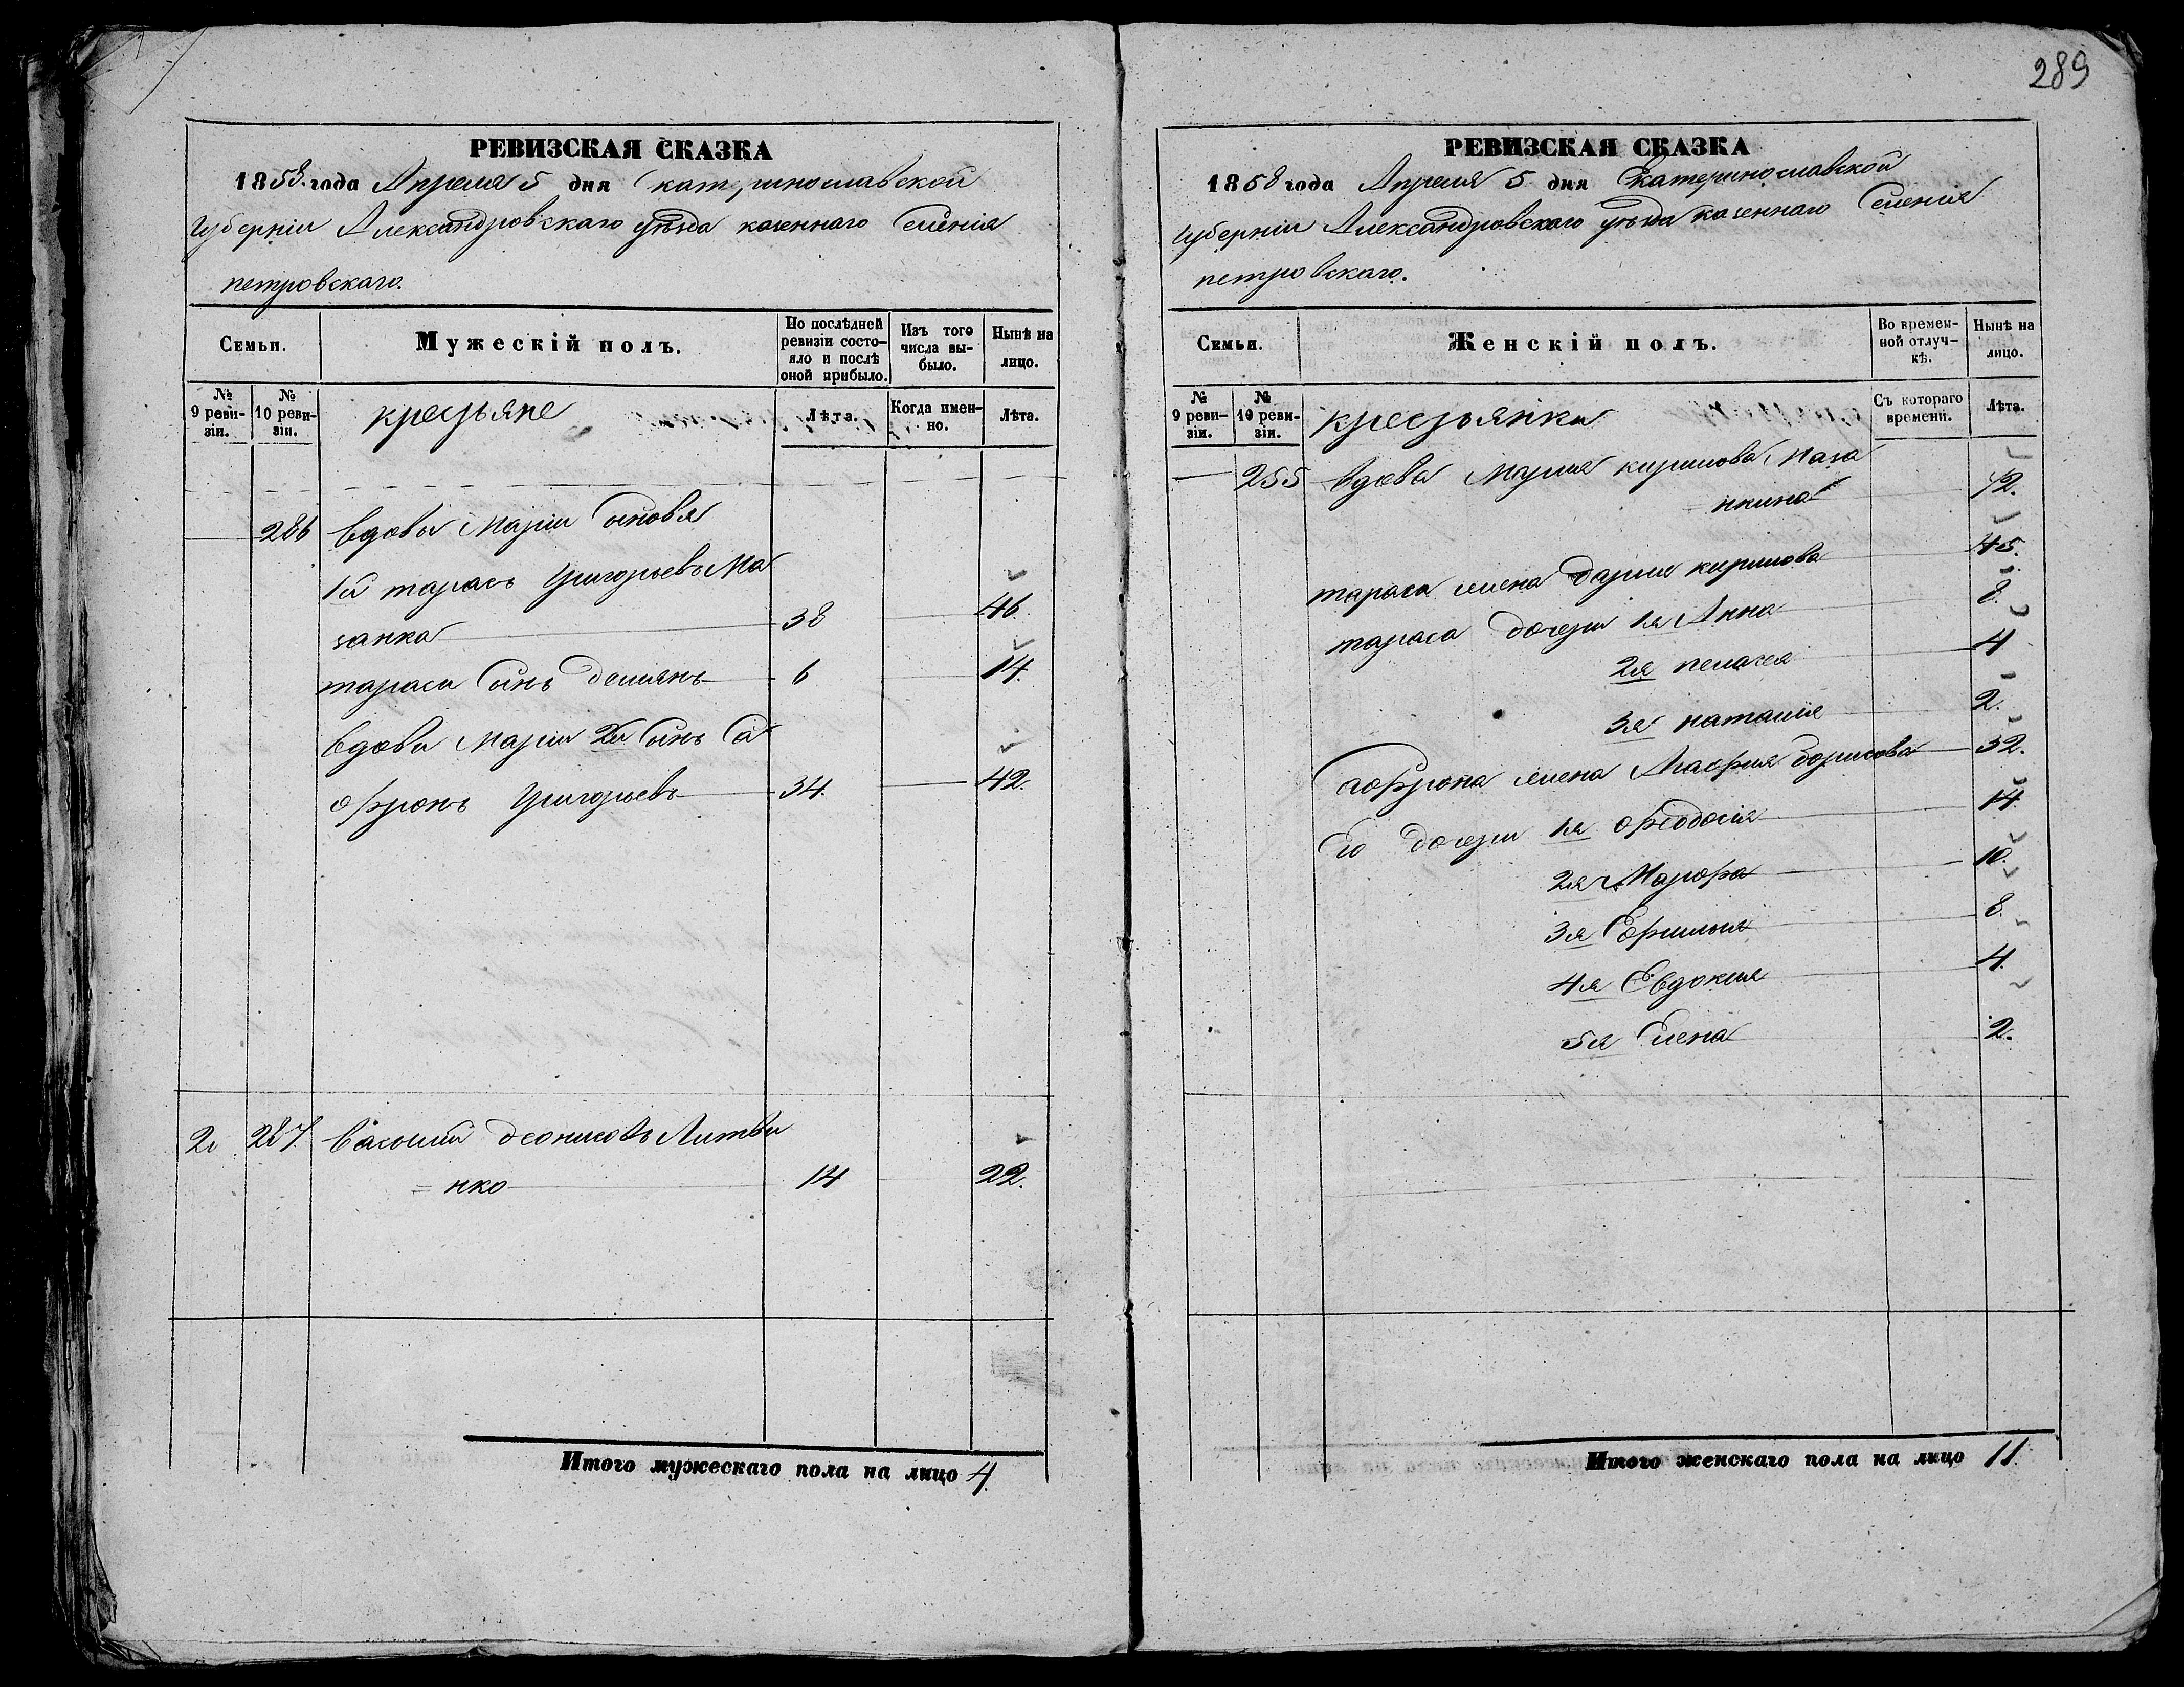 РЕВИЗСКАЯ СКАЗКА
1858 года Апреля 5 дня Екатеринославской
Губерніи Александровскаго уѣзда казеннаго Селенія
петровскаго.
Семьи.
Мужескій полъ.
По послѣдней ревизіи состояло и послѣ оной прибыло.
Изъ того числа выбыло.
Нынѣ на лицо.
№ 9 ревизіи.
№ 10 ревизіи.
крестьяне
Лѣта.
Когда именно.
Лѣта.
286 вдовы Маріи Сыновья
1й тарасъ Григорьевъ Ма
занка 38 46.
тараса Сынъ Демьянъ 6 14.
вдовы Маріи 2й Сынъ Са
офронъ Григорьевъ 34. 42.
287. Василий деонисовъ Литви
= нко 14 22.
Итого мужескаго пола на лицо 4.
289
РЕВИЗСКАЯ СКАЗКА
1858 года Апреля 5 дня Екатеринославской
Губерніи Александровскаго уѣзда казеннаго Селенія
петровскаго.
Семьи.
Женскій полъ.
Во временной отлучкѣ.
Нынѣ на лицо.
№ 9 ревизіи.
№ 10 ревизіи.
крестьянки
Съ котораго времени.
Лѣта.
255 вдова Мария кирилова Маза
нкина 72.
тараса жена Дария кирилова 45.
тараса дочери 1я Анна 8.
2я пелагея 4
3я наталия 2.
софрона жена Агафия Борисова 32.
Его дочери 1я Феодосія 14
2я Марфа 10.
3я Ефимия 8.
4я Евдокия 4.
5я Елена 2.
Итого женскаго пола на лицо 11.